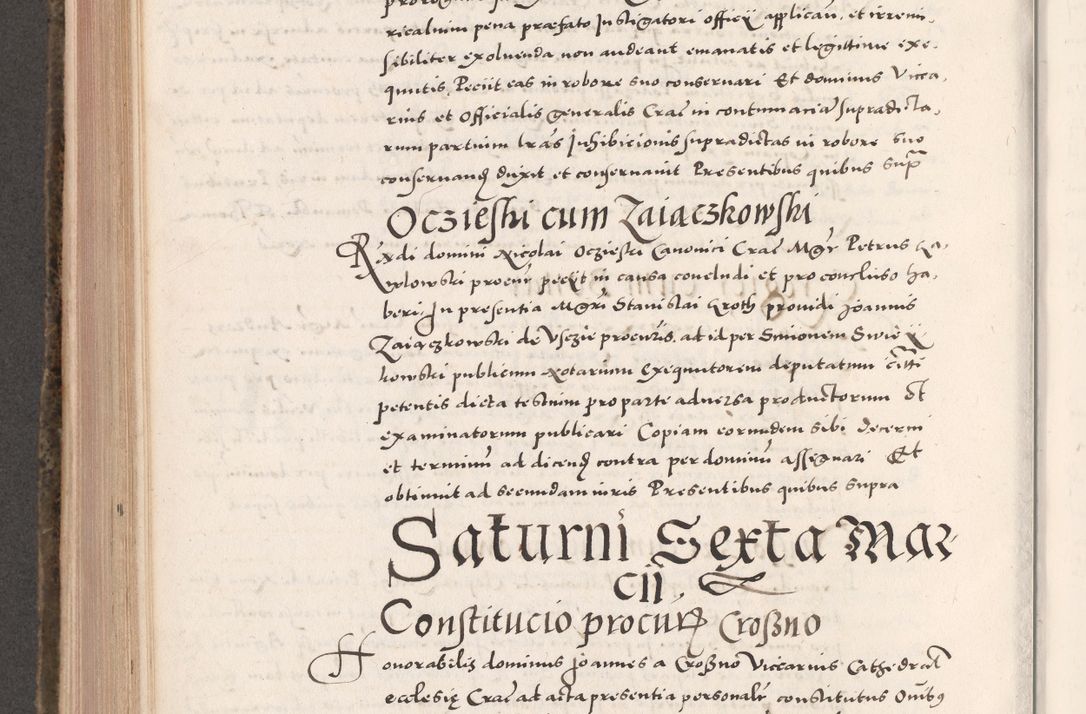 ricalium pena præfato Instigatori officij applican, et irremi,
sibiliter exoluenda non audeant emanatis et legittime exe,
quutis, Peciit eas in robore suo conseruari Et dominus Vica,
rius et Officialis generalis Crac in contumacia supradicta,
rum partium lras Inhibicionis supradictas in robore suo
conseruand duxit et conseruauit Presentibus quibus Supra
Oczieski cum Zaiaczkowski
Rndi domini Nicolai Oczieski Canonici Crac Mgr Petrus Ka,
wlowski procur peciit in causa concludi et pro concluso ha,
beri, In presentia Mgri Stanislai Kroth prouidi Joannis
Zaiaczkowski de Vsczie procuris, ad id per Simonem Swie
kowski publicum Notarium Exequutorem deputatum citti
petentis dicta testium pro parte aduersa productorum Et
examinatorum publicari Copiam eorundem sibi Decerni
et terminum ad dicend contra per dominum assignari Et
obtinuit ad secundam iuris Presentibus quibus Supra
Saturni Sexta Mar
cii,
Constitucio procur Croßno
Honorabilis dominus Joannes a Croßno Viccarius Cathedral
ecclesię Crac ad acta presentia personalr constitutus Omnibus